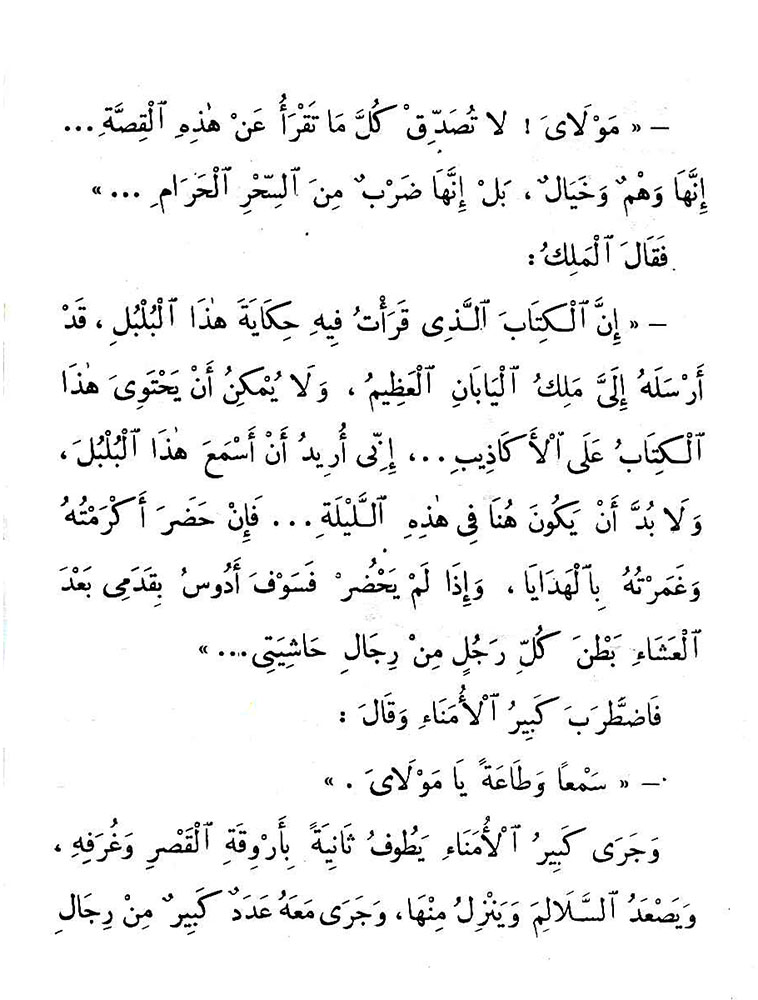 – « مَوْلَاىَ ! لا تُصَدِّقْ كُلَّ مَا تَقْرَأُ عَنْ هٰذِهِ ٱلْقِصَّةِ ...
إِنَّهَا وَهْمٌ وَخَيَالٌ ، بَلْ إِنَّهَا ضَرْبٌ مِنَ ٱلسِّحْرِ ٱلْحَرَامِ ... »
فَقَالَ ٱلْمَلِكُ :
– « إِنَّ ٱلْكِتَابَ ٱلَّذِى قَرَأْتُ فِيهِ حِكَايَةَ هٰذَا ٱلْبُلْبُلِ ، قَدْ
أَرْسَلَهُ إِلَىَّ مَلِكُ ٱلْيَابَانِ ٱلْعَظِيمُ ، وَلَا يُمْكِنُ أَنْ يَحْتَوِىَ هٰذَا
ٱلْكِتَابُ عَلَى ٱلْأَكَاذِيبِ ... ، إِنِّى أُرِيدُ أَنْ أَسْمَعَ هٰذَا ٱلْبُلْبُلَ ،
وَلَا بُدَّ أَنْ يَكُونَ هُنَا فِى هٰذِهِ ٱللَّيْلَةِ ... فَإِنْ حَضَرَ أَكْرَمْتُهُ
وَغَمَرْتُهُ بِٱلْهَدَايَا ، وَإِذَا لَمْ يَحْضُرْ فَسَوْفَ أَدُوسُ بِقَدَمِى بَعْدَ
ٱلْعَشَاءِ بَطْنَ كُلِّ رَجُلٍ مِنْ رِجَالِ حَاشِيَتِى ... »
فَاضْطَّرَبَ كَبِيرُ ٱلْأُمَنَاءِ وَقَالَ :
– « سَمْعًا وَطَاعَةً يَا مَوْلَاىَ . »
وَجَرَى كَبِيرُ ٱلْأُمَنَاءِ يَطُوفُ ثَانِيَةً بِأَرْوِقَةِ ٱلْقَصْرِ وَغُرَفِهِ ،
وَيَصْعَدُ ٱلسَّلَالِمَ وَيَنْزِلُ مِنْهَا ، وَجَرَى مَعَهُ عَدَدٌ كَبِيرٌ مِنْ رِجَالِ